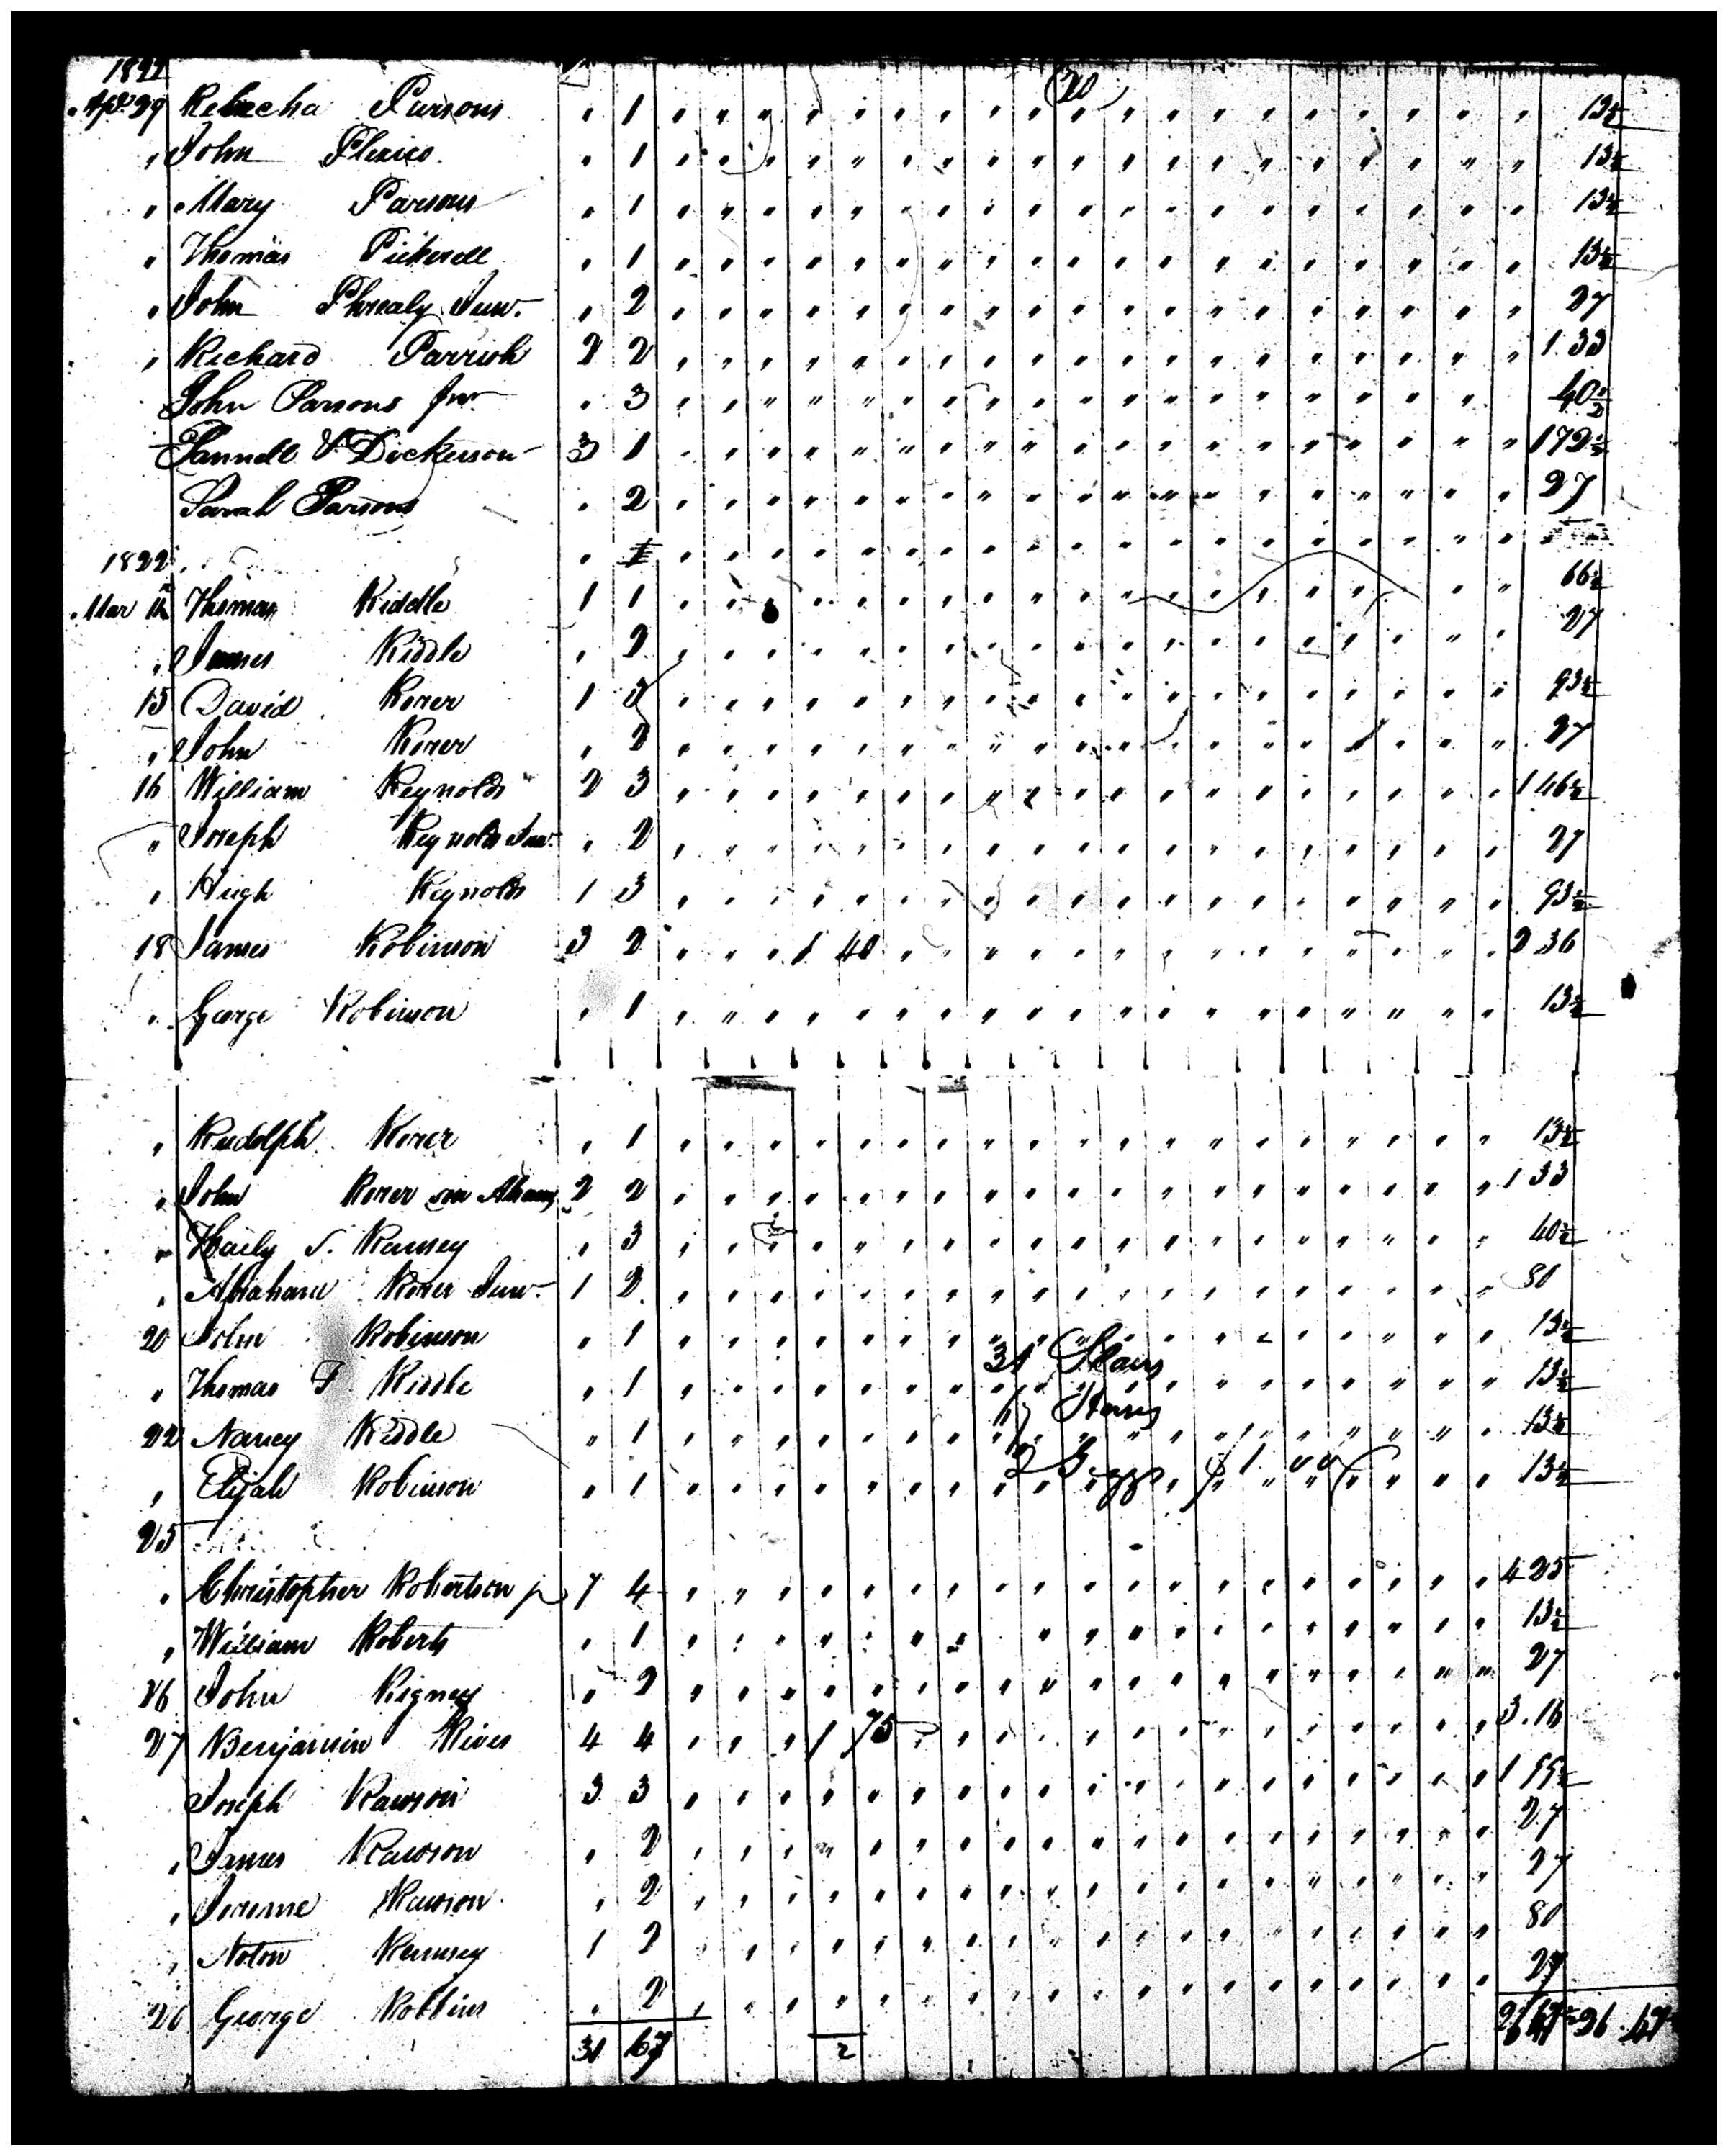 1822
20
Apl 29 Rebecha Parsons " 1 13½
" John Plexico " 1 13½
" Mary Parsons " 1 13½
" Thomas Pickerell " 1 13½
" John Phrealy Junr. " 2 27
" Richard Parrish 2 2 1.33
John Parsons Jnr " 3 40½
Samuell V. Dickerson 3 1 172½
Sarah Parsons " 2 27
1822
Mar Thomas Riddle 1 1 66½
" James Riddle " 2 27
15 David Rorer 1 3 93½
" John Rorer " 2 27
16 William Reynolds 2 3 1 46½
" Joseph Reynolds Junr. " 2 27
" Hugh Reynolds 1 3 93½
18 James Robinson 3 2 1 40 2 36
" George Robinson " 1 13½
" Rudolph Rorer " 1 13½
" John Rorer son Abam 2 2 1 33
" Haily S. Ramsey " 3 40½
" Abraham Rorer Junr. 1 2 80
20 John Robinson " 1 13½
31 Slaves
" Thomas F Riddle " 1 13½
67 Horses
22 Nancy Riddle " 1 13½
2 Giggs
" Elijah Robinson " 1 13½
25
" Christopher Robertson 7 4 4 25
" William Roberts " 1 13½
26 John Rigney " 2 27
27 Benjamin Rives 4 4 1 75 3.16
Joseph Rawson 3 3 1 99½
" James Rawson " 2 27
" Jereme Rawson " 2 27
" Noton Ramsey 1 2 80
George Robbins " 2 27
31 67 2 26 67